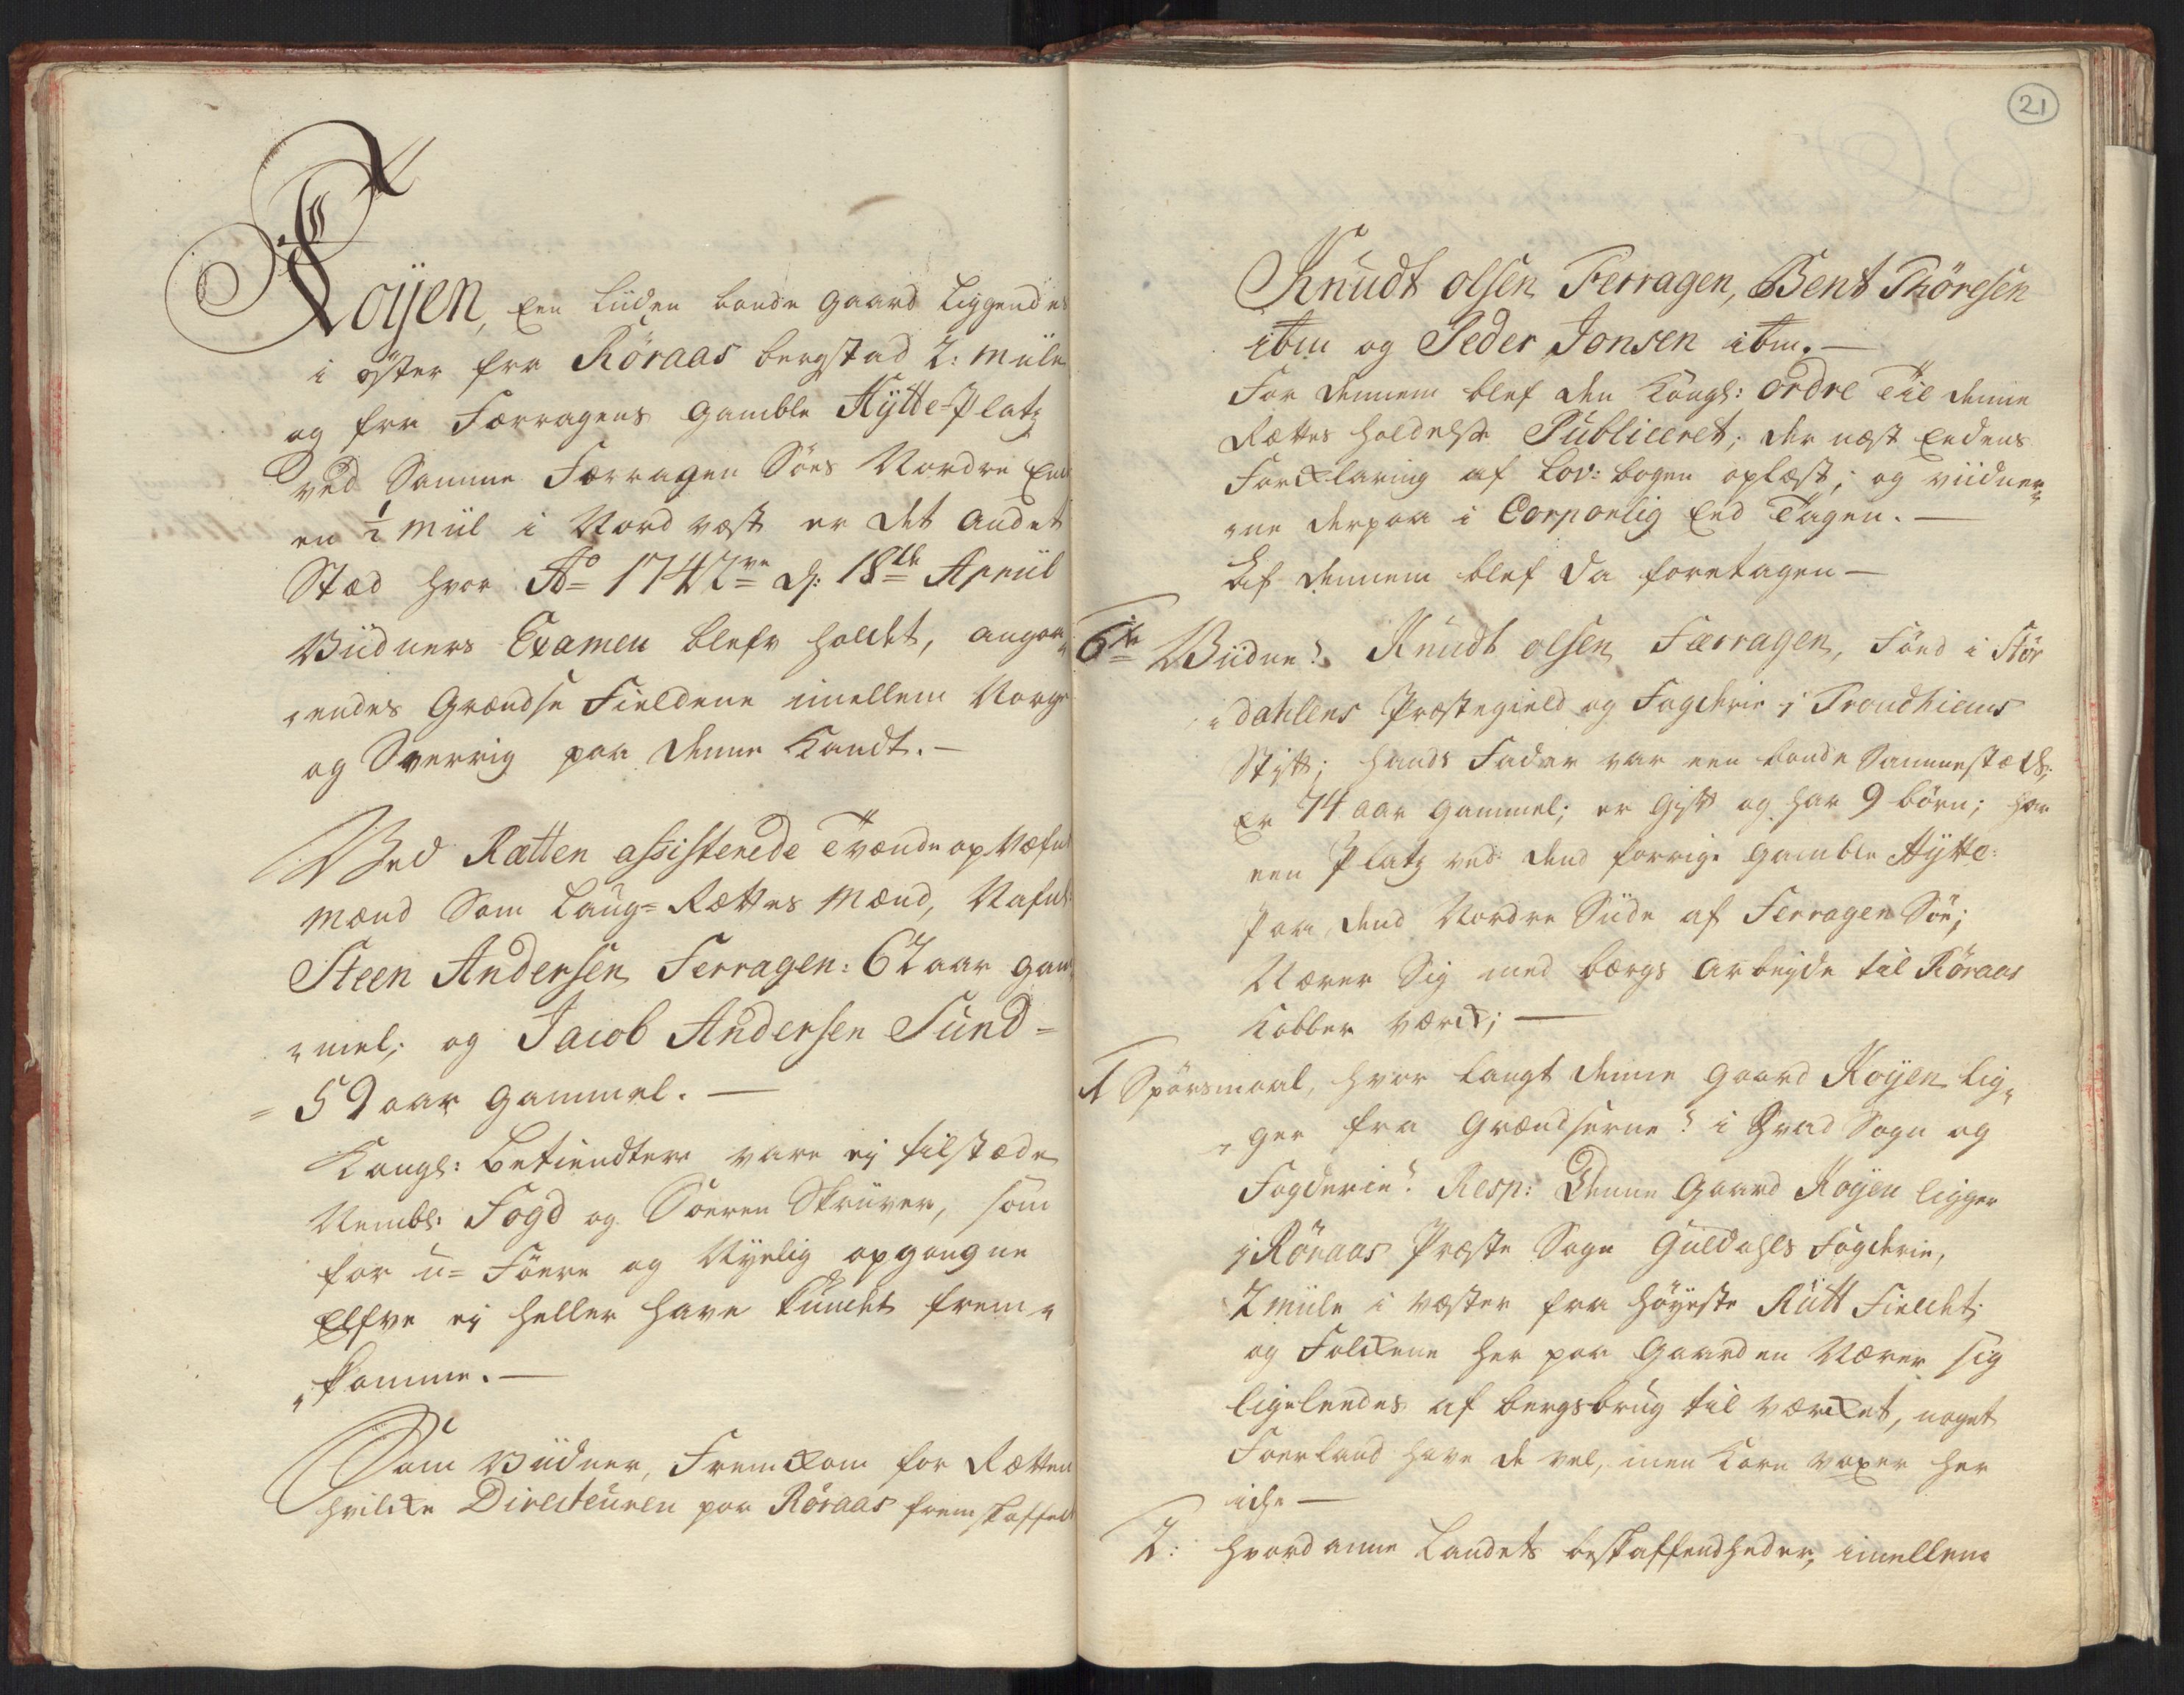 Koÿen, Een liiden bonde gaard liggendes
i öster fra Röraas bergstad 2: miile
og fra Ferragens gamble Hÿtte-Platz
ved Samme Ferragen Söes Nordre Ende
en ½ miil i Nordvest er det andet
Sted hvor Aº 1742ve d: 18de Apriil
Viidners Examen blefv holdet, angaa-
„endes Grændse Fieldene imellem Norge
og Sverrig paa denne Kandt. —
Ved Rætten assisterede Tvende opnæfnte
Mænd Som Laug-Rættes Mænd, Nafnl:
Steen Andersen Ferragen: 62 aar gam
„mel; og Jacob Andersen Sund =
= 59 aar gammel. —
Kongl: Betiendtere vare eÿ tilstæde
Nembl: Fogd og Soeren Skriiver, som
for u= Föere og Nÿelig opgangne
Elfve eÿ heller have kundet frem„
„komme. —
Som Viidner, Fremkom for Rætten
hvilcke Directeuren paa Röraas fremskaffed
21
Knudt olsen Ferragen, Bent Thöresen
ibm og Peder Jonsen ibm. —
For dennem blef den Kongl: ordre Til denne
Rættes holdelse Publiceret; der næst Eedens
Forklaring af Lov: bogen oplæst; og viidner„
„ne derpaa i Corporlig Eed Tagen. —
Af dennem blef da foretagen —
6te Viidne: Knudt olsen Færragen, Föed i Stör
„dahlens Præstegield og Fogderie i Trondhiems
Stift; hands Fader var een bonde Sammestæds;
Er 74 aar gammel; er gift og har 9 börn; har
een Platz ved dend forrige gamble Hÿtte:
Paa dend Nordre Siide af Ferragen Söe;
Nærer Sig med bergs arbeÿde til Röraas
Kobber værck; —
1 Spörsmaal, hvor langt denne gaard Koÿen lig„
„ger fra Grændserne? i hvad Sogn og
Fogderie? Resp: Denne gaard Koÿen ligger
i Röraas Præste Sogn Guldahls Fogderie,
2 miile i vester fra höÿeste Rutt Fieldet;
og Folckene her paa gaarden Nærer sig
ligeleedes af bergsbrug til værcket, noget
Foerland have de vel, men Korn voxer her
icke —
2: hvordanne Landets beskaffendheder, imellem